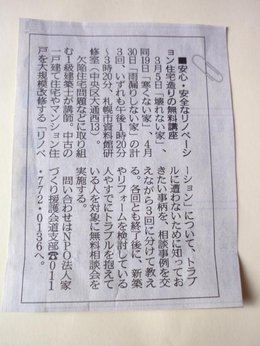 ■安心・安全なリノベーシ
ョン住宅造りの無料講座
3月5日「壊れない家」、
同19日「寒くない家」、4月
30日「雨漏りしない家」の計
3回、いずれも午後1時20分
～3時20分、札幌市資料館研
修室（中央区大通西13）。
欠陥住宅問題などに取り組
む1級建築士が講師。中古の
一戸建て住宅やマンション住
戸を大規模改修する「リノベ
ーション」について、トラブ
ルに遭わないために知ってお
きたい事柄を、相談事例を交
えながら3回に分けて教え
る。各回とも終了後に、新築
やリフォームを検討している
人やすでにトラブルを抱えて
いる人を対象に無料相談会を
実施する。
問い合わせはNPO法人家
づくり援護会北海道支部☎011
・772・0136へ。